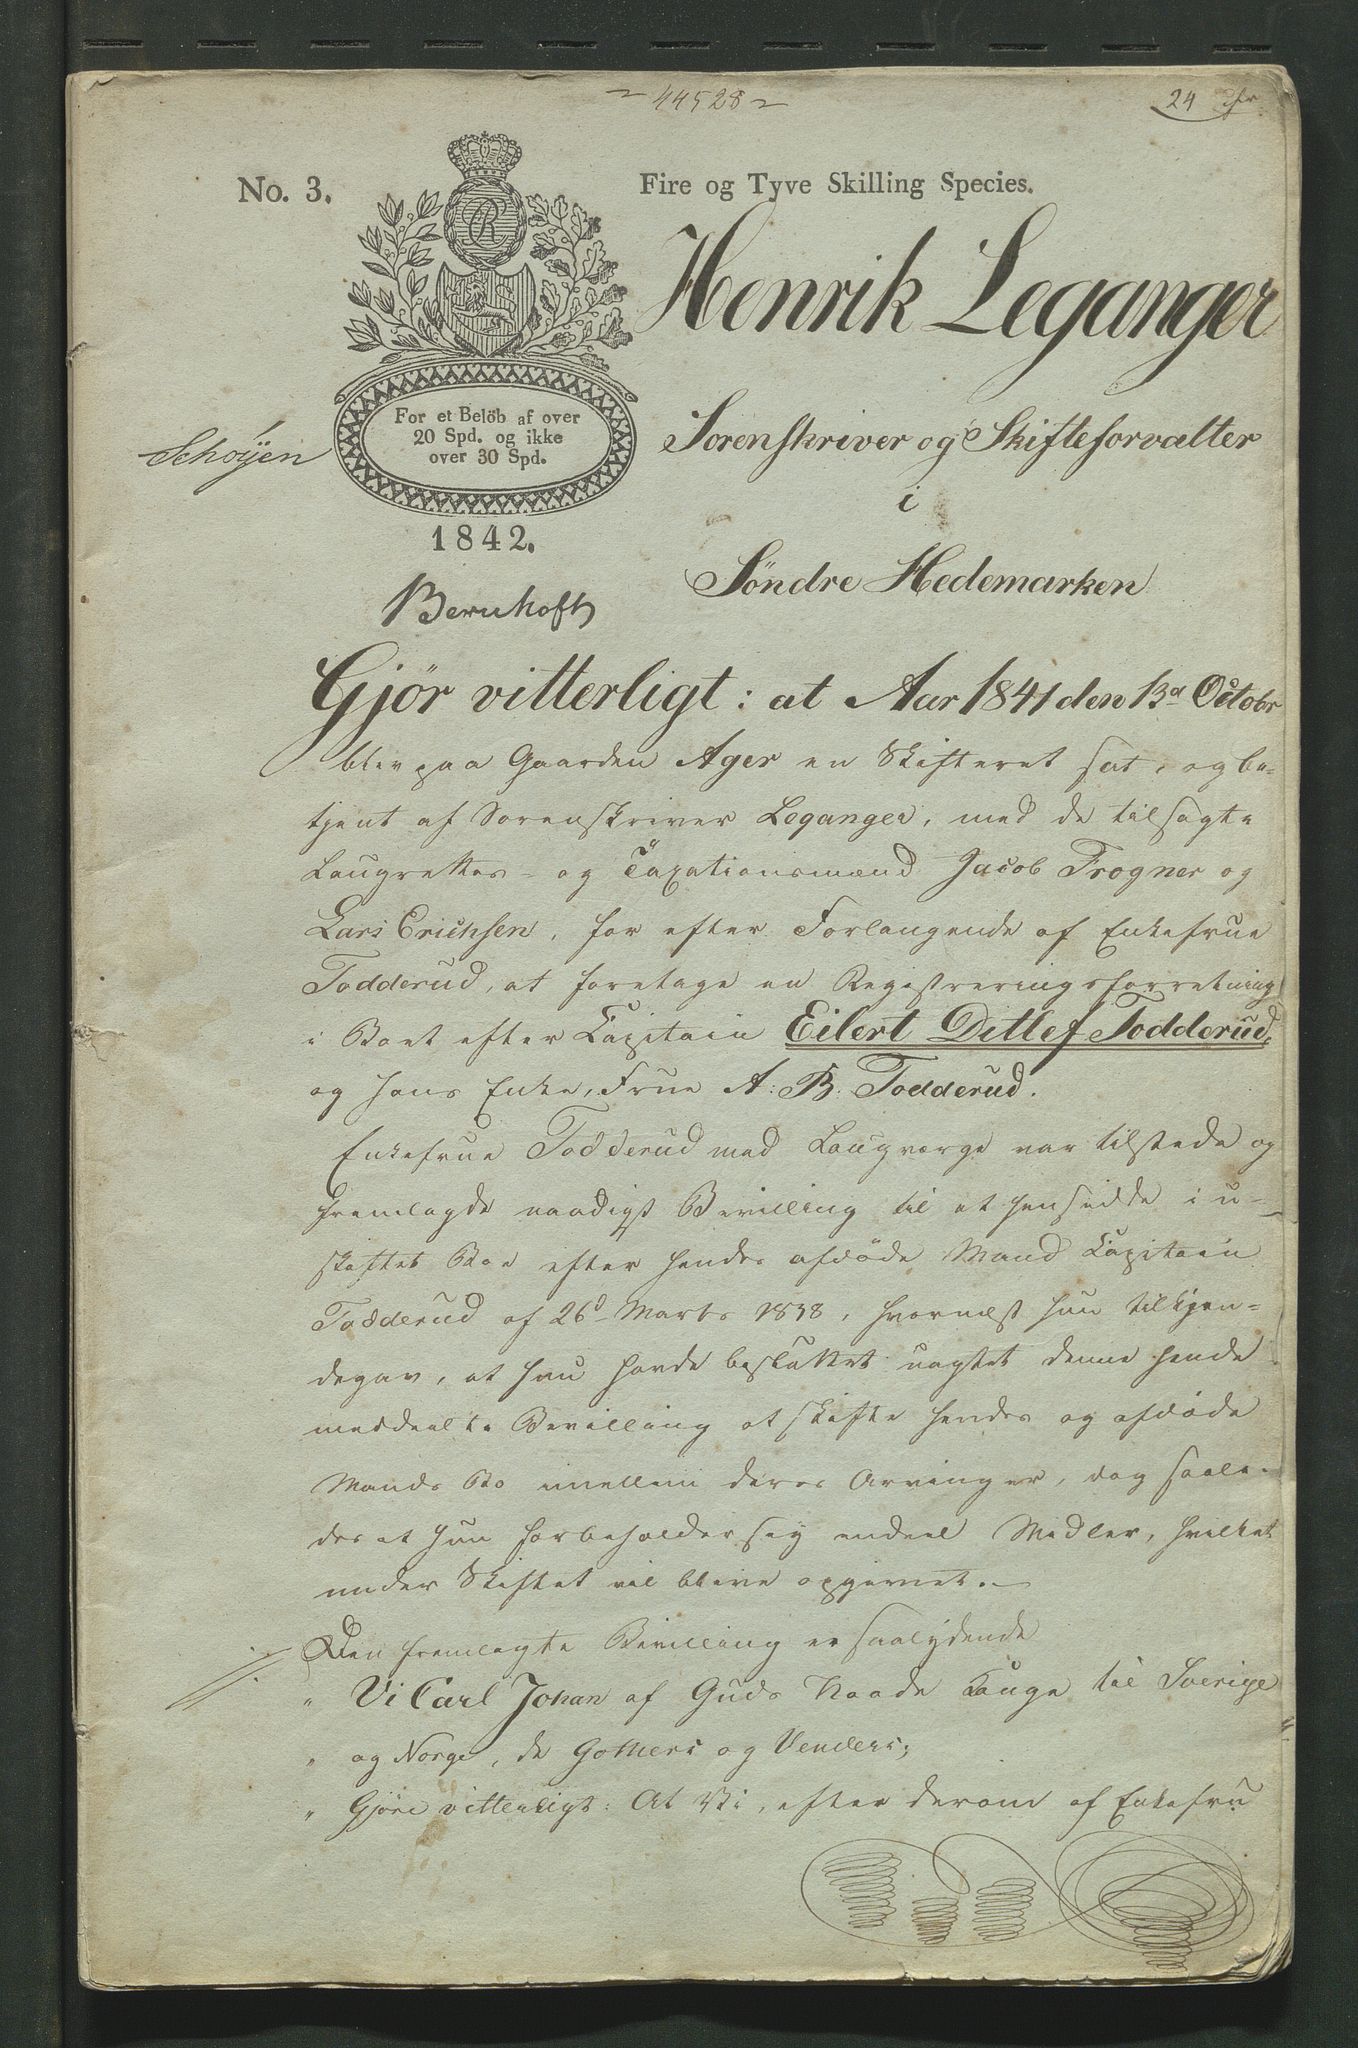 ~ 44528 ~
24 ſz
No. 3.
Fire og Tyve Skilling Species.
Henrik Leganger
For et Belöb af over
20 Spd. og ikke
over 30 Spd.
Schøyen
Sorenskriver og Skifteforvalter
i
1842.
Søndre Hedemarken
Bernhoft
Gjör vitterligt: at Aar 1841 den 13d Octobr
blev paa Gaarden Ager en Skifteret sat, og be-
tjent af Sorenskriver Leganger, med de tilsagte
Laugrettes- og Taxationsmænd Jacob Frogner og
Lars Erichsen, for efter Forlangende af Enkefrue
Todderud, at foretage en Registreringsforretning
i Boet efter Capitain Eilert Ditlef Todderud,
og hans Enke, Frue A: B: Todderud.
Enkefrue Todderud med Laugværge var tilstede og
fremlagde naadigst Bevilling til at hensidde i u-
skiftet Boe efter hendes afdöde Mand Capitain
Todderud af 26d Marts 1838, hvornæst hun tilkjen-
degav, at hun havde besluttet uagtet denne hende
meddeelte Bevilling at skifte hendes og afdöde
Mands Bo imellem deres Arvinger, dog saale-
des at hun forbeholder sig endeel Midler, hvilket
under Skiftet vil blive opgivet. —
Den fremlagte Bevilling er saalydende
" Vi Carl Johan af Guds Naade Konge til Sverige
" og Norge, de Gothers og Venders;
" Gjöre vitterligt: At Vi, efter derom af Enkefru